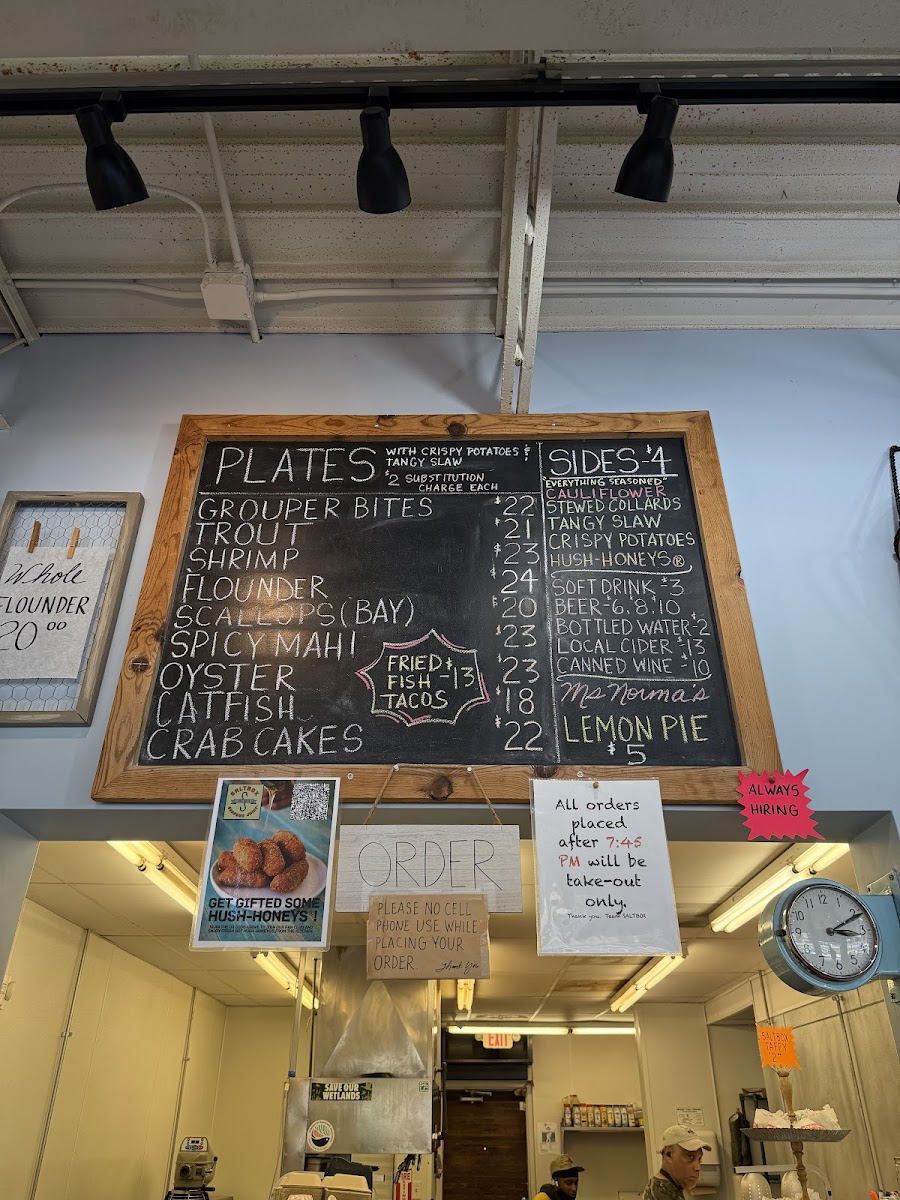 PLATES WITH CRISPY POTATOES &
TANGY SLAW
$2 SUBSTITUTION
CHARGE EACH
GROUPER BITES $22
TROUT $21
SHRIMP $23
FLOUNDER $24
SCALLOPS (BAY) $20
SPICY MAHI $23
OYSTER $23
CATFISH $18
CRAB CAKES $22
FRIED
FISH -$13
TACOS
SIDES-$4
"EVERYTHING SEASONED"
CAULIFLOWER
STEWED COLLARDS
TANGY SLAW
CRISPY POTATOES
HUSH-HONEYS®
SOFT DRINK-$3
BEER-$6.8.10
BOTTLED WATER-$2
LOCAL CIDER-$13
CANNED WINE-$10
Ms Norma's
LEMON PIE
$5
Whole
FLOUNDER
20⁰⁰
SALTBOX
S
GET GIFTED SOME
HUSH-HONEYS®!
ORDER
PLEASE NO CELL
PHONE USE WHILE
PLACING YOUR
ORDER.
Thank You
All orders
placed
after 7:45
PM will be
take-out
only.
Thank you, Team SALTBOX
ALWAYS
HIRING
12
1
2
3
4
5
6
7
8
9
10
11
SALTBOX
TAFFY
$2
EXIT
SAVE OUR
WETLANDS